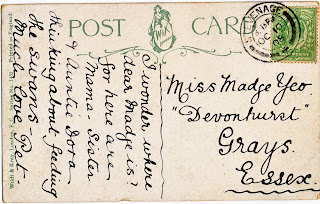 POST CARD
I wonder where
dear Madge is?
For here are
Mama - Sister
& Auntie Dora
thinking about feeding
the Swans -
Much Love - Pet -
Miss Madge Yeo
"Devonhurst"
Grays.
Essex.